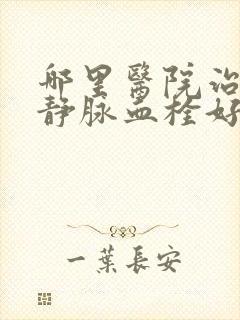 哪里醫院治
静脉血栓好
一葉長安